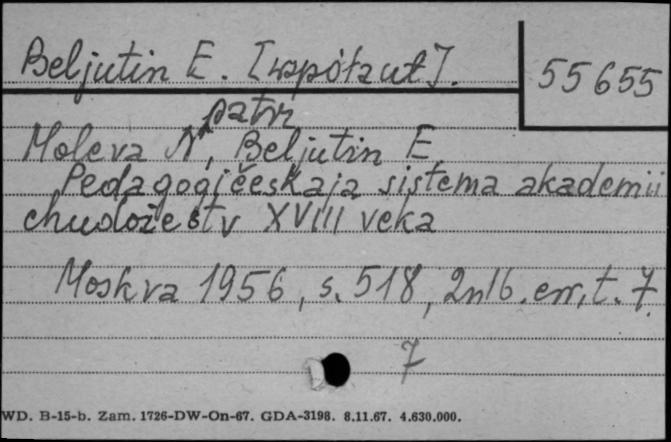 Beljutin E. [współaut].
55655
patrz
Moleva N, Beljutin E
Pedagogičeskaja sistema akademii
chudožestv XVIII veka
Moskva 1956, s. 518, 2 nlb. err, t. 7
7
WD. B-15-b. Zam. 1726-DW-On-67. GDA-3198. 8.11.67. 4.630.000.